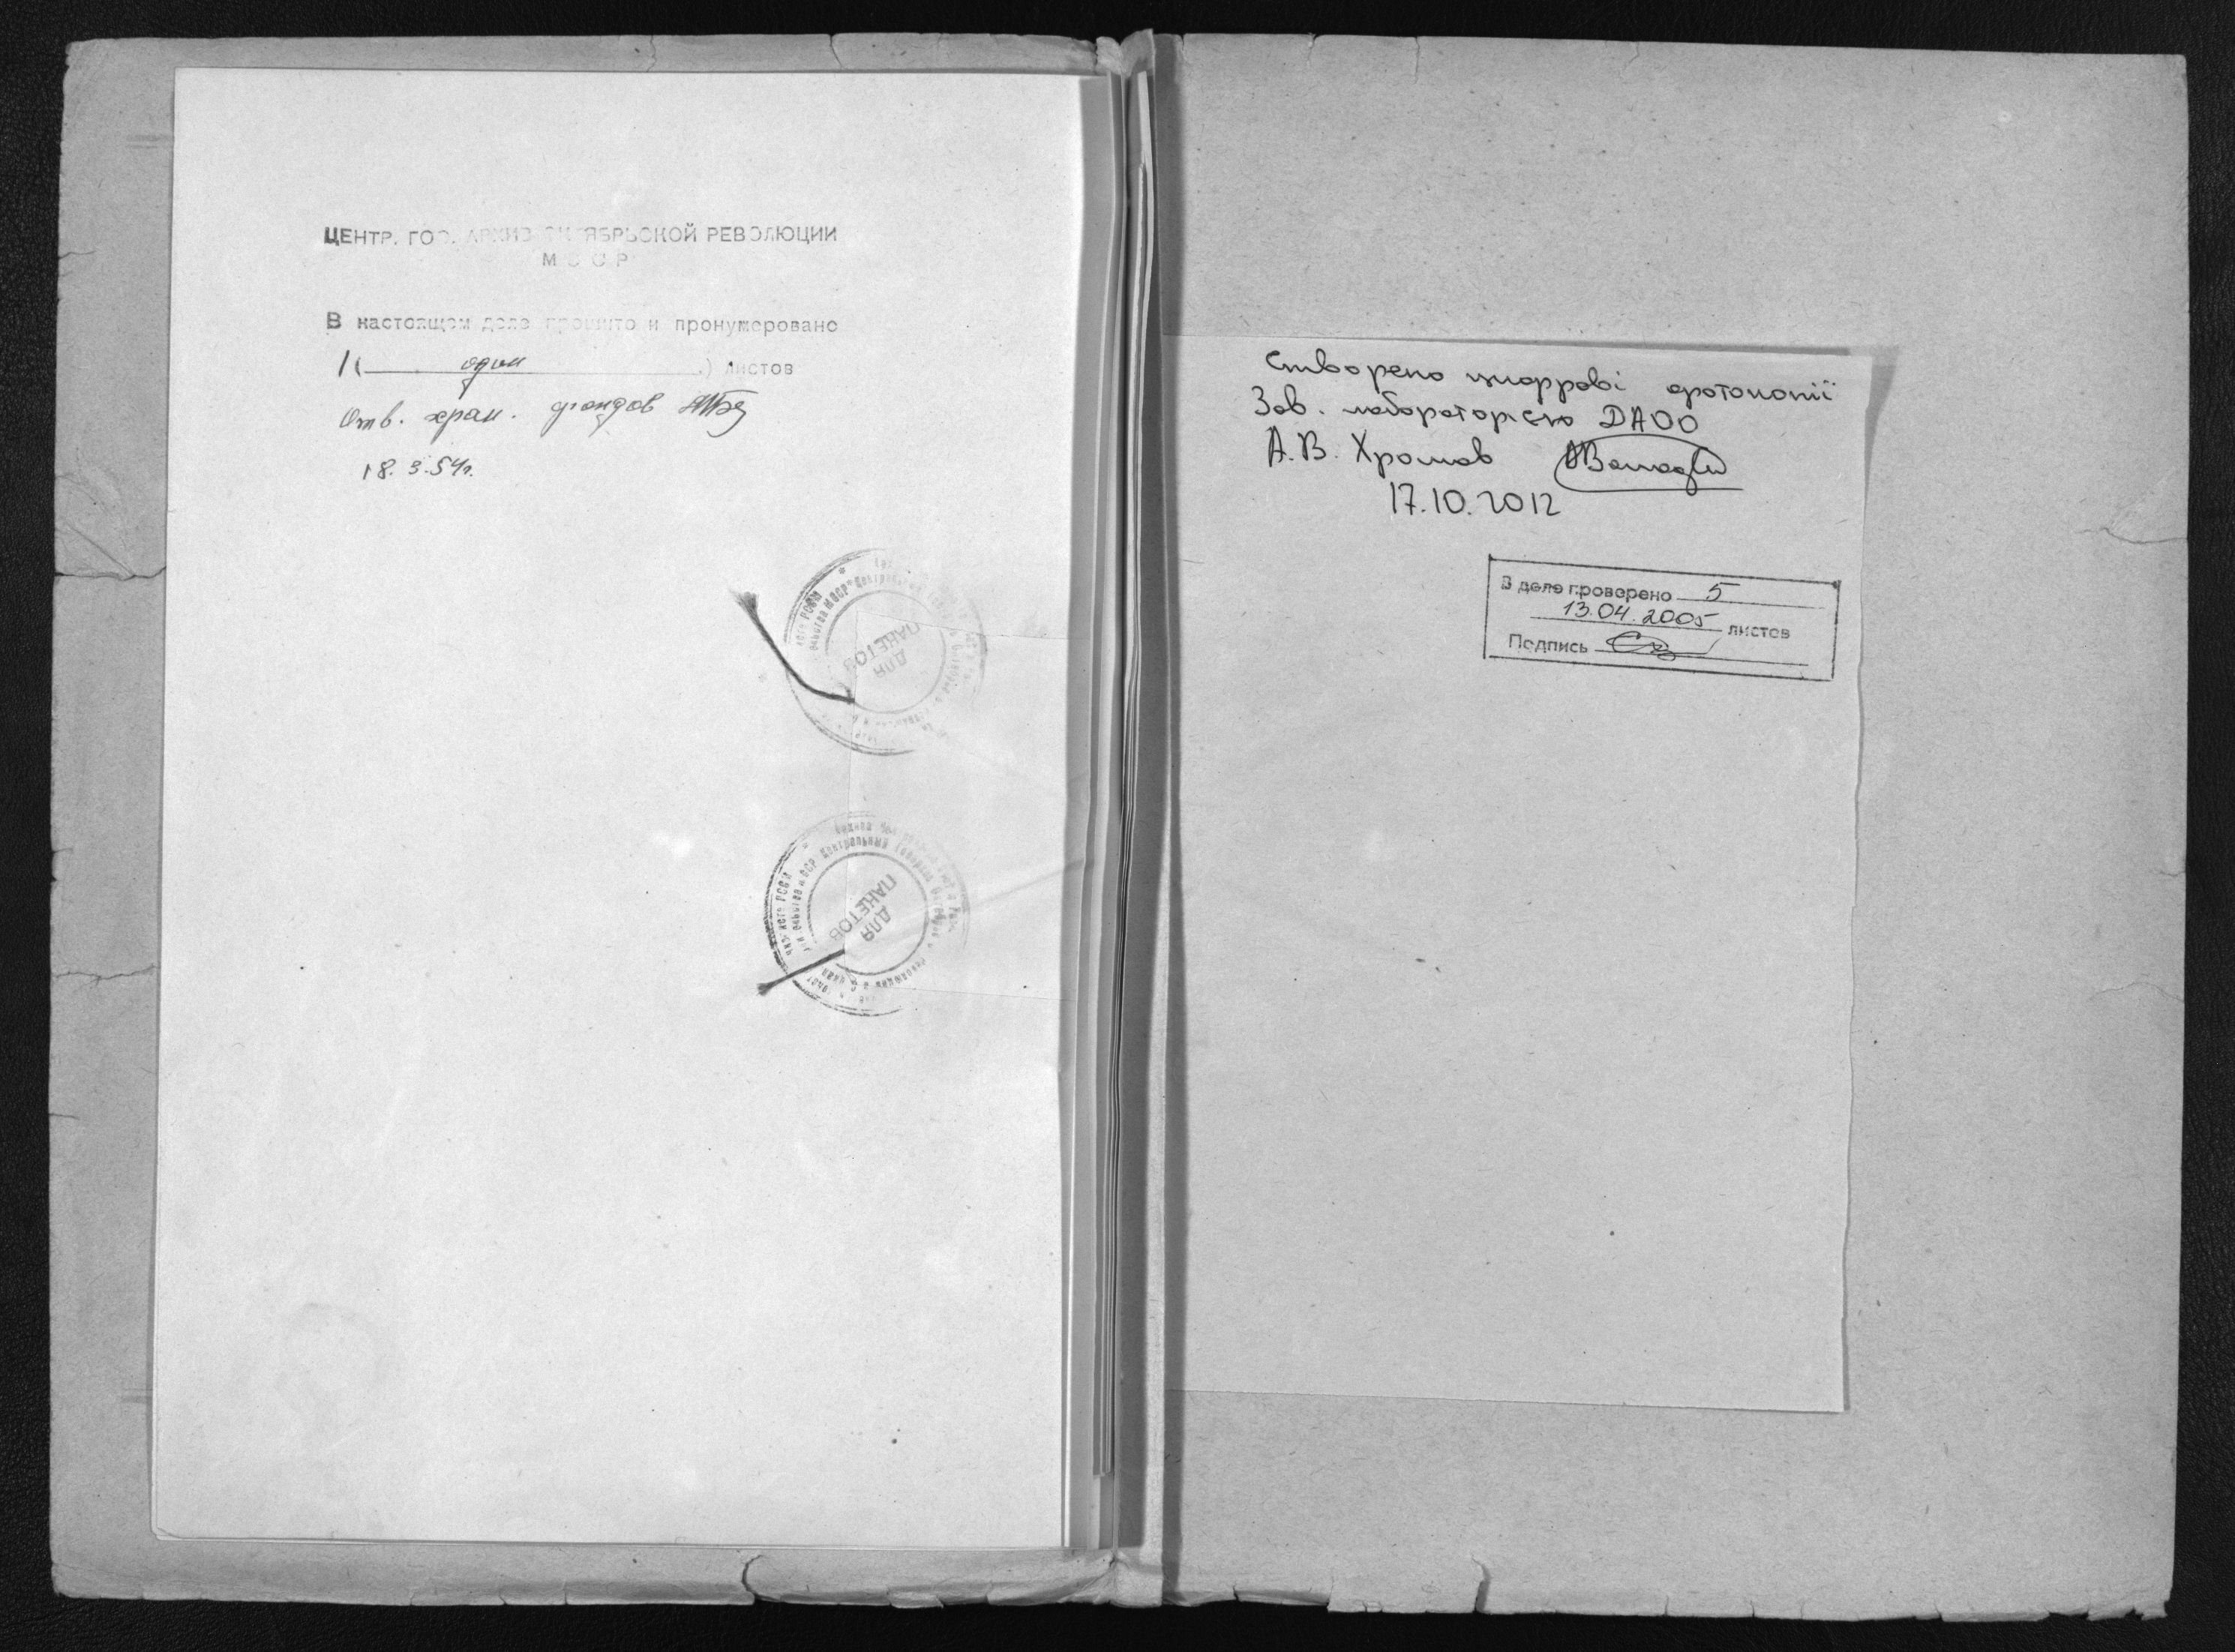 ЦЕНТР. ГОС. АРХИВ ОКТЯБРЬСКОЙ РЕВОЛЮЦИИ
МССР
В настоящем деле прошито и пронумеровано
1 ( один ) листов
Отв. хран. фондов
18.3.54г.
ДЛЯ
ПАКЕТОВ
ДЛЯ
ПАКЕТОВ
Створено цифрові фотокопії
Зав. лабораторією ДАОО
А.В. Хромов
17.10.2012
В деле проверено 5
13.04.2005 листов
Подпись